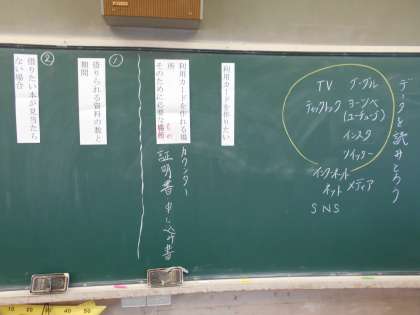 データを読みとろう
グーグル
ヨーツベ
(ユーチューブ)
インスタ
ツイッター
TV
ティックトック
インターネット
ネット
メディア
SNS
利用カードを作りたい
利用カードを作れる場
所
そのために必要な
カウンター
証明書 申し込み書
①
借りられる資料の数と
期間
②
借りたい本が見当たら
ない場合